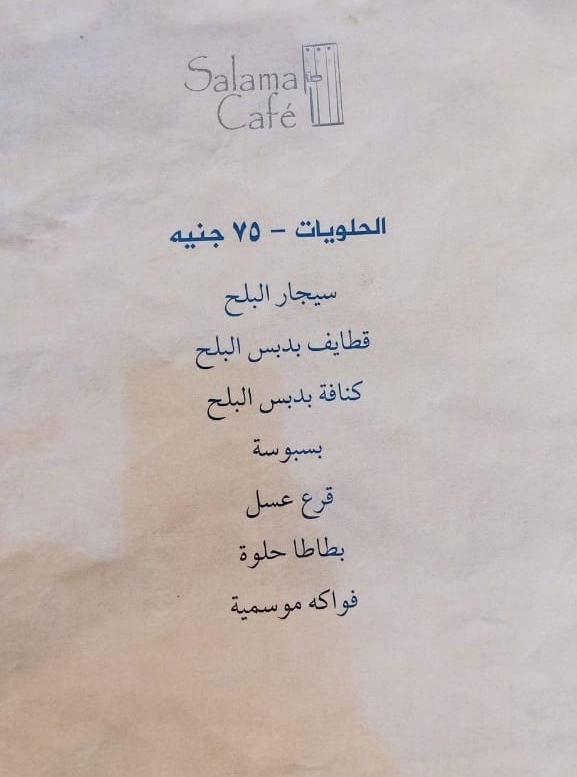 Salama
Café
الحلويات - ٧٥ جنيه
سيجار البلح
قطايف بدبس البلح
كنافة بدبس البلح
بسبوسة
قرع عسل
بطاطا حلوة
فواكه موسمية